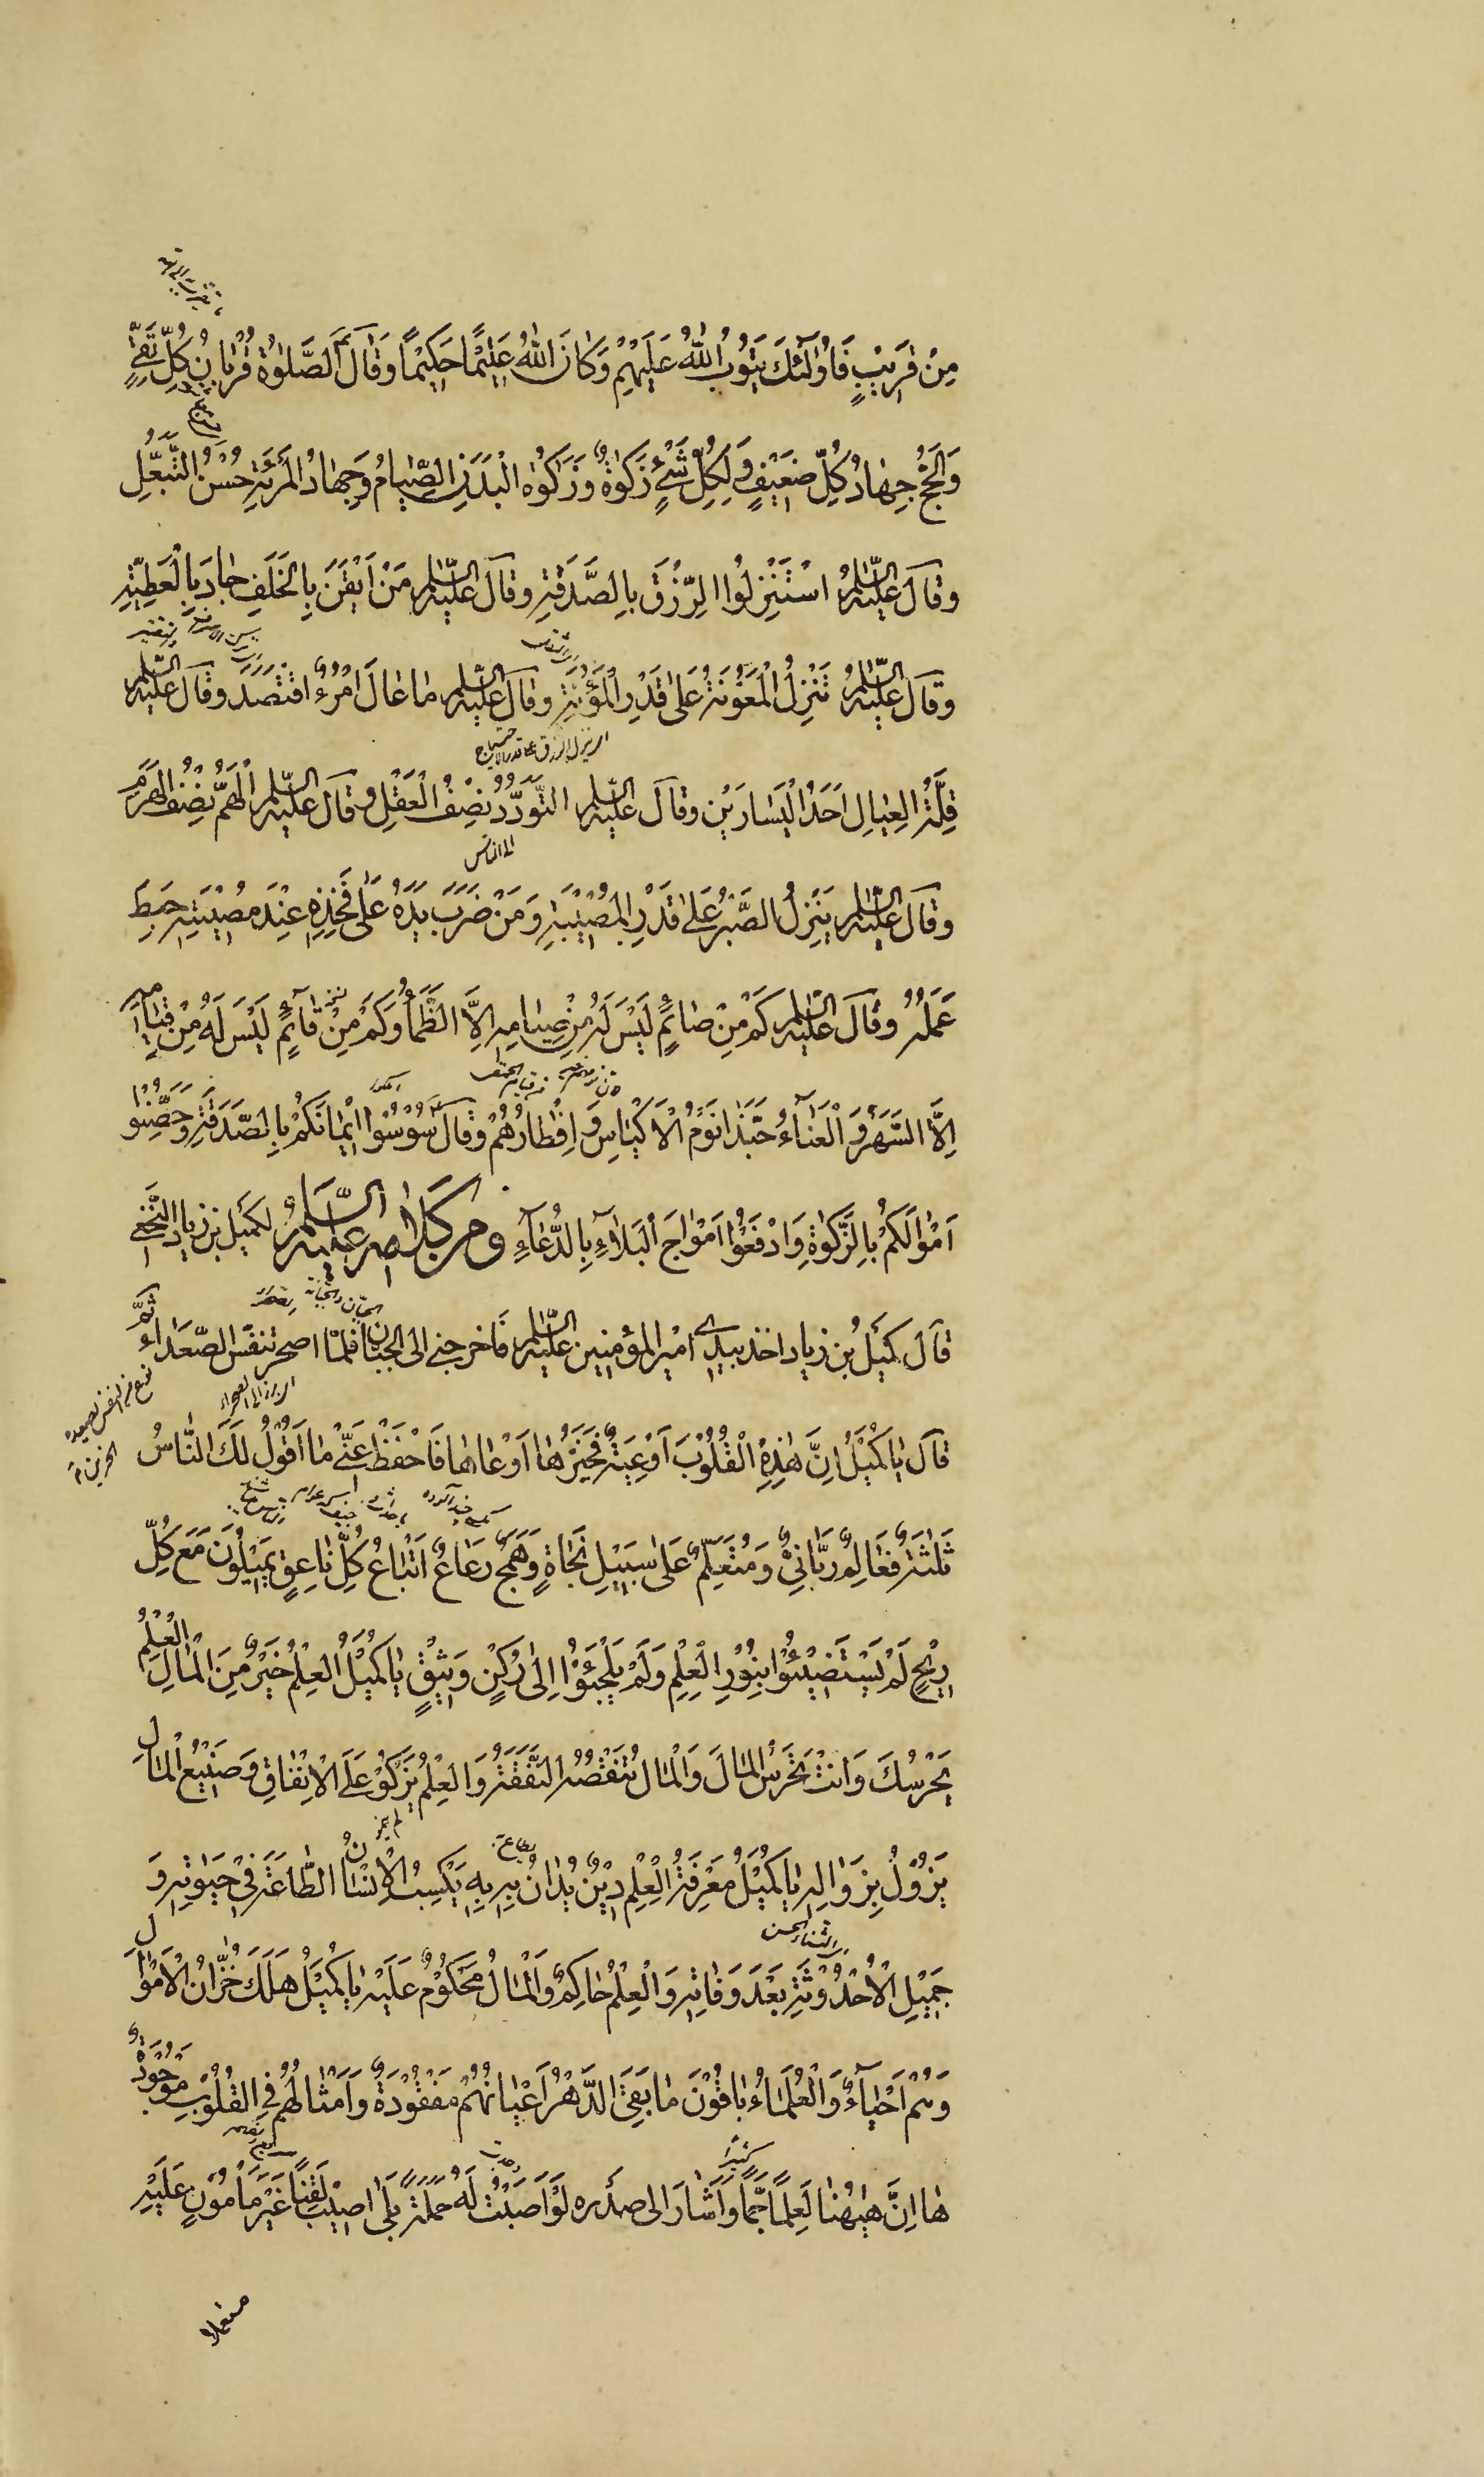 مِنْ قَرِيْبٍ فَاُولٰٓئِكَ يَتُوْبُ اللّٰهُ عَلَيْهِمْ وَكَانَ اللّٰهُ عَلِيْمًا حَكِيْمًا وَقَالَ ؑ الصَّلٰوةُ قُرْبَانُ كُلِّ تَقِيٍّ
وَالْحَجُّ جِهَادُ كُلِّ ضَعِيْفٍ وَلِكُلِّ شَيْءٍ زَكٰوةٌ وَزَكٰوةُ الْبَدَنِ الصِّيَامُ وَجِهَادُ الْمَرْئَةِ حُسْنُ التَّبَعُّلِ
وَقَالَ عَلَيْهِ السَّلٰمُ اسْتَنْزِلُوا الرِّزْقَ بِالصَّدَقَةِ وَقَالَ عَلَيْهِ السَّلٰم مَنْ اَيْقَنَ بِالْخَلَفِ جَادَ بِالْعَطِيَّةِ
وَقَالَ عَلَيْهِ السَّلٰمُ تَنْزِلُ الْمَعُوْنَةُ عَلٰى قَدْرِ الْمَؤُنَةِ وَقَالَ عَلَيْهِ السَّلٰم مَا عَالَ امْرُءٌ اقْتَصَدَ وَقَالَ عَلَيْهِ السَّلٰم
اى ينزل الرزق على قدر الاحتياج
قِلَّةُ الْعِيَالِ اَحَدُ الْيَسَارَيْنِ وَقَالَ عَلَيْهِ السَّلٰم التَّوَدُّدُ نِصْفُ الْعَقْلِ وَقَالَ عَلَيْهِ السَّلٰم اَلْهَمُّ نِصْفُ الْهَرَمِ
الى الناس
وَقَالَ عَلَيْهِ السَّلٰم يَنْزِلُ الصَّبْرُ عَلٰى قَدْرِ الْمُصِيْبَةِ وَمَنْ ضَرَبَ يَدَهُ عَلٰى فَخِذِهِ عِنْدَ مُصِيْبَتِهِ حَبِطَ
عَمَلُهُ وَقَالَ عَلَيْهِ السَّلٰم كَمْ مِنْ صَائِمٍ لَيْسَ لَهُ مِنْ صِيَامِهِ اِلَّا الظَّمَأُ وَكَمْ مِنْ قَآئِمٍ لَيْسَ لَهُ مِنْ قِيَامِهِ
اِلَّا السَّهَرُ وَالْعَنَآءُ حَبَّذَا نَوْمُ الْاَكْيَاسِ وَاِفْطَارُهُمْ وَقَالَ ؑ سُوْسُوْا اِيْمَانَكُمْ بِالصَّدَقَةِ وَحَصِّنُوْا
اَمْوَالَكُمْ بِالزَّكٰوةِ وَادْفَعُوْا اَمْوَاجَ الْبَلَآءِ بِالدُّعَآءِ ومن كلامه عليه السَّلٰمُ لكميل بن زياد النَّخَعِي
قَالَ كُمَيْلُ بْنُ زِيَاد اخذ بيدى امير المؤمنين عَلَيْهِ السَّلٰم فَاخرجنى الى الجبان فلمّا اصحر تنفّس الصّعداء ثُمَّ
قَالَ يَا كُمَيْلُ اِنَّ هٰذِهِ الْقُلُوْبَ اَوْعِيَةٌ فَخَيْرُهَا اَوْعَاهَا فَاحْفَظْ عَنِّى مَا اَقُوْلُ لَكَ النَّاسُ
ثَلٰثَةٌ فَعَالِمٌ رَبَّانِيٌّ وَمُتَعَلِّمٌ عَلٰى سَبِيْلِ نَجَاةٍ وَهَمَجٌ رَعَاعٌ اَتْبَاعُ كُلِّ نَاعِقٍ يَمِيْلُوْنَ مَعَ كُلِّ
رِيْحٍ لَمْ يَسْتَضِيْئُوْا بِنُوْرِ الْعِلْمِ وَلَمْ يَلْجَئُوْا اِلٰى رُكْنٍ وَثِيْقٍ يَا كُمَيْلُ الْعِلْمُ خَيْرٌ مِنَ الْمَالِ الْعِلْمُ
يَحْرُسُكَ وَاَنْتَ تَحْرُسُ الْمَالَ وَالْمَالُ تَنْقُصُهُ النَّفَقَةُ وَالْعِلْمُ يَزْكُوْ عَلَى الْاِنْفَاقِ وَصَنِيْعُ الْمَالِ
يَزُوْلُ بِزَوَالِهِ يَا كُمَيْلُ مَعْرِفَةُ الْعِلْمِ دِيْنٌ يُدَانُ بِهِ بِهِ يَكْسِبُ الْاِنْسَانُ الطَّاعَةَ فِىْ حَيٰوتِهِ وَ
جَمِيْلِ الْاُحْدُوْثَةِ بَعْدَ وَفَاتِهِ وَالْعِلْمُ حَاكِمٌ وَالْمَالُ مَحْكُوْمٌ عَلَيْهِ يَا كُمَيْلُ هَلَكَ خُزَّانُ الْاَمْوَالِ
وَهُمْ اَحْيَآءٌ وَالْعُلَمَاءُ بَاقُوْنَ مَا بَقِىَ الدَّهْرُ اَعْيَانُهُمْ مَفْقُوْدَةٌ وَاَمْثَالُهُمْ فِى الْقُلُوْبِ مَوْجُوْدَةٌ
كثيرًا
هَا اِنَّ هٰهُنَا لَعِلْمًا جَمًّا وَاَشَارَ الى صدره لَوْ اَصَبْتُ لَهُ حَمَلَةً بَلٰى اُصِيْبُ لَقِنًا غَيْرَ مَأْمُوْنٍ عَلَيْهِ